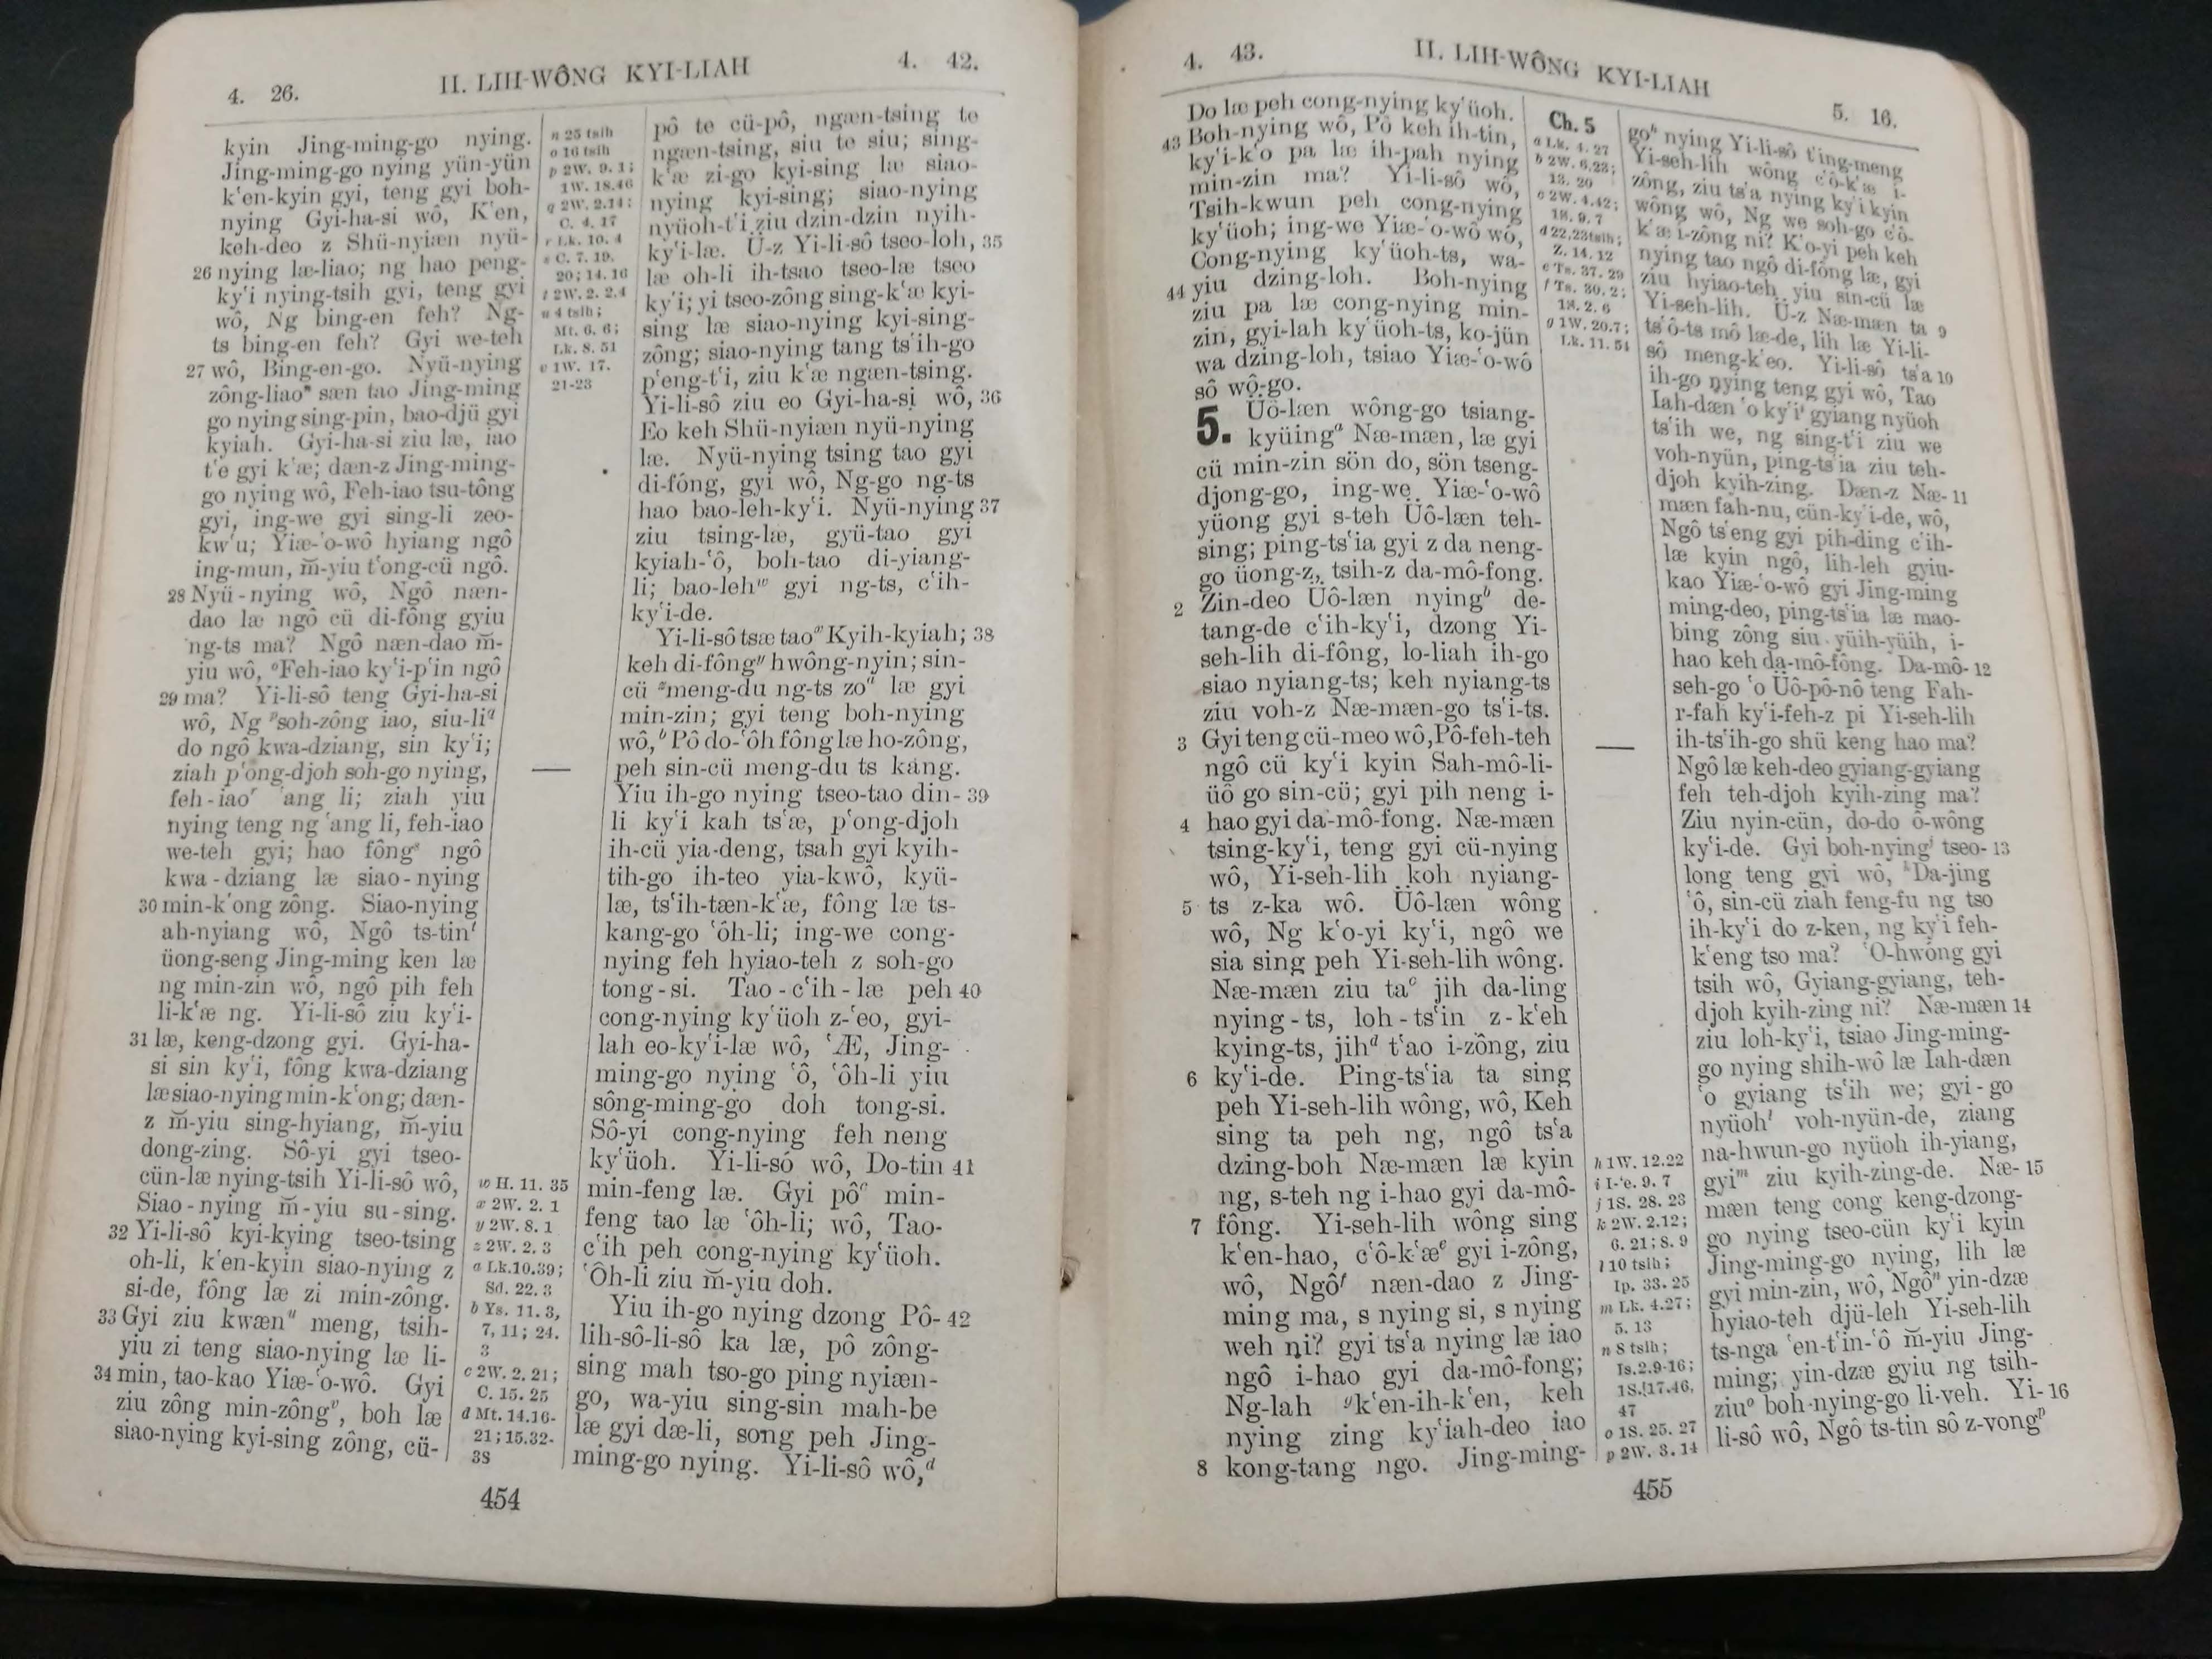 4. 26.
II. LIH-WÔNG KYI-LIAH
4. 42.
kyin Jing-ming-go nying.
Jing-ming-go nying yün-yün
k'en-kyin gyi, teng gyi boh-
nying Gyi-ha-si wô, K'en,
keh-deo z Shü-nyiæn nyü-
26 nying læ-liao; ng hao peng-
ky'i nying-tsih gyi, teng gyi
wô, Ng bing-en feh? Ng-
ts bing-en feh? Gyi we-teh
27 wô, Bing-en-go. Nyü-nying
zông-liaoⁿ sæn tao Jing-ming
go nying sing-pin, bao-djü gyi
kyiah. Gyi-ha-si ziu læ, iao
t'e gyi k'æ; dæn-z Jing-ming-
go nying wô, Feh-iao tsu-tông
gyi, ing-we gyi sing-li zeo-
kw'u; Yiæ-'o-wô hyiang ngô
ing-mun, m̆-yiu t'ong-cü ngô.
28 Nyü-nying wô, Ngô næn-
dao læ ngô cü di-fông gyiu
ng-ts ma? Ngô næn-dao m̆-
yiu wô, ᵒFeh-iao ky'i-p'in ngô
29 ma? Yi-li-sô teng Gyi-ha-si
wô, Ng ᵖsoh-zông iao, siu-li^q
do ngô kwa-dziang, sin ky'i;
ziah p'ong-djoh soh-go nying,
feh-iaoʳ 'ang li; ziah yiu
nying teng ng 'ang li, feh-iao
we-teh gyi; hao fôngˢ ngô
kwa-dziang læ siao-nying
30 min-k'ong zông. Siao-nying
ah-nyiang wô, Ngô ts-tinᵗ
üong-seng Jing-ming ken læ
ng min-zin wô, ngô pih feh
li-k'æ ng. Yi-li-sô ziu ky'i-
31 læ, keng-dzong gyi. Gyi-ha-
si sin ky'i, fông kwa-dziang
læ siao-nying min-k'ong; dæn-
z m̆-yiu sing-hyiang, m̆-yiu
dong-zing. Sô-yi gyi tseo-
cün-læ nying-tsih Yi-li-sô wô,
Siao-nying m̆-yiu su-sing.
32 Yi-li-sô kyi-kying tseo-tsing
oh-li, k'en-kyin siao-nying z
si-de, fông læ zi min-zông.
33 Gyi ziu kwænᵘ meng, tsih-
yiu zi teng siao-nying læ li-
34 min, tao-kao Yiæ-'o-wô. Gyi
ziu zông min-zôngᵛ, boh læ
siao-nying kyi-sing zông, cü-
n 25 tsih
o 16 tsih
p 2W. 9. 1;
1W. 18.46
q 2W. 2.14;
C. 4. 17
r Lk. 10. 4
s C. 7. 19,
20; 14. 16
t 2W. 2. 2.4
u 4 tsih;
Mt. 6. 6;
Lk. 8. 51
v 1W. 17.
21-23
w H. 11. 35
x 2W. 2. 1
y 2W. 8. 1
z 2W. 2. 3
a Lk.10.39;
Sd. 22. 3
b Ys. 11. 3,
7, 11; 24.
3
c 2W. 2. 21;
C. 15. 25
d Mt. 14.16-
21; 15.32-
38
pô te cü-pô, ngæn-tsing te
ngæn-tsing, siu te siu; sing-
k'æ zi-go kyi-sing læ siao-
nying kyi-sing; siao-nying
nyüoh-t'i ziu dzin-dzin nyih-
ky'i-læ. Ü-z Yi-li-sô tseo-loh, 35
læ oh-li ih-tsao tseo-læ tseo
ky'i; yi tseo-zông sing-k'æ kyi-
sing læ siao-nying kyi-sing-
zông; siao-nying tang ts'ih-go
p'eng-t'i, ziu k'æ ngæn-tsing.
Yi-li-sô ziu eo Gyi-ha-si wô, 36
Eo keh Shü-nyiæn nyü-nying
læ. Nyü-nying tsing tao gyi
di-fông, gyi wô, Ng-go ng-ts
hao bao-leh-ky'i. Nyü-nying 37
ziu tsing-læ, gyü-tao gyi
kyiah-'ô, boh-tao di-yiang-
li; bao-lehʷ gyi ng-ts, c'ih-
ky'i-de.
Yi-li-sô tsæ taoˣ Kyih-kyiah; 38
keh di-fôngʸ hwông-nyin; sin-
cü ᶻmeng-du ng-ts zoᵃ læ gyi
min-zin; gyi teng boh-nying
wô,ᵇ Pô do-'ôh fông læ ho-zông,
peh sin-cü meng-du ts kang.
Yiu ih-go nying tseo-tao din- 39
li ky'i kah ts'æ, p'ong-djoh
ih-cü yia-deng, tsah gyi kyih-
tih-go ih-teo yia-kwô, kyü-
læ, ts'ih-tæn-k'æ, fông læ ts-
kang-go 'ôh-li; ing-we cong-
nying feh hyiao-teh z soh-go
tong-si. Tao-c'ih-læ peh 40
cong-nying ky'üoh z-'eo, gyi-
lah eo-ky'i-læ wô, 'Æ, Jing-
ming-go nying 'ô, 'ôh-li yiu
sông-ming-go doh tong-si.
Sô-yi cong-nying feh neng
ky'üoh. Yi-li-sô wô, Do-tin 41
min-feng læ. Gyi pôᶜ min-
feng tao læ 'ôh-li; wô, Tao-
c'ih peh cong-nying ky'üoh.
'Ôh-li ziu m̆-yiu doh.
Yiu ih-go nying dzong Pô- 42
lih-sô-li-sô ka læ, pô zông-
sing mah tso-go ping nyiæn-
go, wa-yiu sing-sin mah-be
læ gyi dæ-li, song peh Jing-
ming-go nying. Yi-li-sô wô,ᵈ
454
4. 43.
II. LIH-WÔNG KYI-LIAH
5. 16.
Do læ peh cong-nying ky'üoh.
43 Boh-nying wô, Pô keh ih-tin,
ky'i-k'o pa læ ih-pah nying
min-zin ma? Yi-li-sô wô,
Tsih-kwun peh cong-nying
ky'üoh; ing-we Yiæ-'o-wô wô,
Cong-nying ky'üoh-ts, wa-
44 yiu dzing-loh. Boh-nying
ziu pa læ cong-nying min-
zin, gyi-lah ky'üoh-ts, ko-jün
wa dzing-loh, tsiao Yiæ-'o-wô
sô wô-go.
5. Üô-læn wông-go tsiang-
kyüingᵃ Næ-mæn, læ gyi
cü min-zin sön do, sön tseng-
djong-go, ing-we Yiæ-'o-wô
yüong gyi s-teh Üô-læn teh-
sing; ping-ts'ia gyi z da neng-
go üong-z, tsih-z da-mô-fong.
2 Zin-deo Üô-læn nyingᵇ de-
tang-de c'ih-ky'i, dzong Yi-
seh-lih di-fông, lo-liah ih-go
siao nyiang-ts; keh nyiang-ts
ziu voh-z Næ-mæn-go ts'i-ts.
3 Gyi teng cü-meo wô, Pô-feh-teh
ngô cü ky'i kyin Sah-mô-li-
üô go sin-cü; gyi pih neng i-
4 hao gyi da-mô-fong. Næ-mæn
tsing-ky'i, teng gyi cü-nying
wô, Yi-seh-lih koh nyiang-
5 ts z-ka wô. Üô-læn wông
wô, Ng k'o-yi ky'i, ngô we
sia sing peh Yi-seh-lih wông.
Næ-mæn ziu taᶜ jih da-ling
nying-ts, loh-ts'in z-k'eh
kying-ts, jihᵈ t'ao i-zông, ziu
6 ky'i-de. Ping-ts'ia ta sing
peh Yi-seh-lih wông, wô, Keh
sing ta peh ng, ngô ts'a
dzing-boh Næ-mæn læ kyin
ng, s-teh ng i-hao gyi da-mô-
7 fông. Yi-seh-lih wông sing
k'en-hao, c'ô-k'æᵉ gyi i-zông,
wô, Ngôᶠ næn-dao z Jing-
ming ma, s nying si, s nying
weh ni? gyi ts'a nying læ iao
ngô i-hao gyi da-mô-fong;
Ng-lah ᵍk'en-ih-k'en, keh
nying zing ky'iah-deo iao
8 kong-tang ngo. Jing-ming-
Ch. 5
a Lk. 4. 27
b 2W. 6.23;
13. 20
c 2W. 4.42;
1S. 9. 7
d 22,23tsih;
Z. 14. 12
e Ts. 37. 29
f Ts. 30. 2;
1S. 2. 6
g 1W. 20.7;
Lk. 11. 54
h 1W. 12.22
i I-'e. 9. 7
j 1S. 28. 23
k 2W. 2.12;
6. 21; 8. 9
l 10 tsih;
Ip. 33. 25
m Lk. 4.27;
5. 13
n 8 tsih;
Is.2.9-16;
1S.17.46,
47
o 1S. 25. 27
p 2W. 3. 14
goʰ nying Yi-li-sô t'ing-meng
Yi-seh-lih wông c'ô-k'æ i-
zông, ziu ts'a nying ky'i kyin
wông wô, Ng we soh-go c'ô-
k'æ i-zông ni? K'o-yi peh keh
nying tao ngô di-fông læ, gyi
ziu hyiao-teh yiu sin-cü læ
Yi-seh-lih. Ü-z Næ-mæn ta 9
ts'ô-ts mô læ-de, lih læ Yi-li-
sô meng-k'eo. Yi-li-sô ts'a 10
ih-go nying teng gyi wô, Tao
Iah-dæn 'o ky'iⁱ gyiang nyüoh
ts'ih we, ng sing-t'i ziu we
voh-nyün, ping-ts'ia ziu teh-
djoh kyih-zing. Dæn-z Næ- 11
mæn fah-nu, cün-ky'i-de, wô,
Ngô ts'eng gyi pih-ding c'ih-
læ kyin ngô, lih-leh gyiu-
kao Yiæ-'o-wô gyi Jing-ming
ming-deo, ping-ts'ia læ mao-
bing zông siu yüih-yüih, i-
hao keh da-mô-fông. Da-mô- 12
seh-go 'o Üô-pô-nô teng Fah-
r-fah ky'i-feh-z pi Yi-seh-lih
ih-ts'ih-go shü keng hao ma?
Ngô læ keh-deo gyiang-gyiang
feh teh-djoh kyih-zing ma?
Ziu nyin-cün, do-do ô-wông
ky'i-de. Gyi boh-nyingʲ tseo- 13
long teng gyi wô, ᵏDa-jing
'ô, sin-cü ziah feng-fu ng tso
ih-ky'i do z-ken, ng ky'i feh-
k'eng tso ma? 'O-hwông gyi
tsih wô, Gyiang-gyiang, teh-
djoh kyih-zing ni? Næ-mæn 14
ziu loh-ky'i, tsiao Jing-ming-
go nying shih-wô læ Iah-dæn
'o gyiang ts'ih we; gyi-go
nyüohˡ voh-nyün-de, ziang
na-hwun-go nyüoh ih-yiang,
gyiᵐ ziu kyih-zing-de. Næ- 15
mæn teng cong keng-dzong-
go nying tseo-cün ky'i kyin
Jing-ming-go nying, lih læ
gyi min-zin, wô, Ngôⁿ yin-dzæ
hyiao-teh djü-leh Yi-seh-lih
ts-nga 'en-t'in-'ô m̆-yiu Jing-
ming; yin-dzæ gyiu ng tsih-
ziuᵒ boh-nying-go li-veh. Yi- 16
li-sô wô, Ngô ts-tin sô z-vongᵖ
455